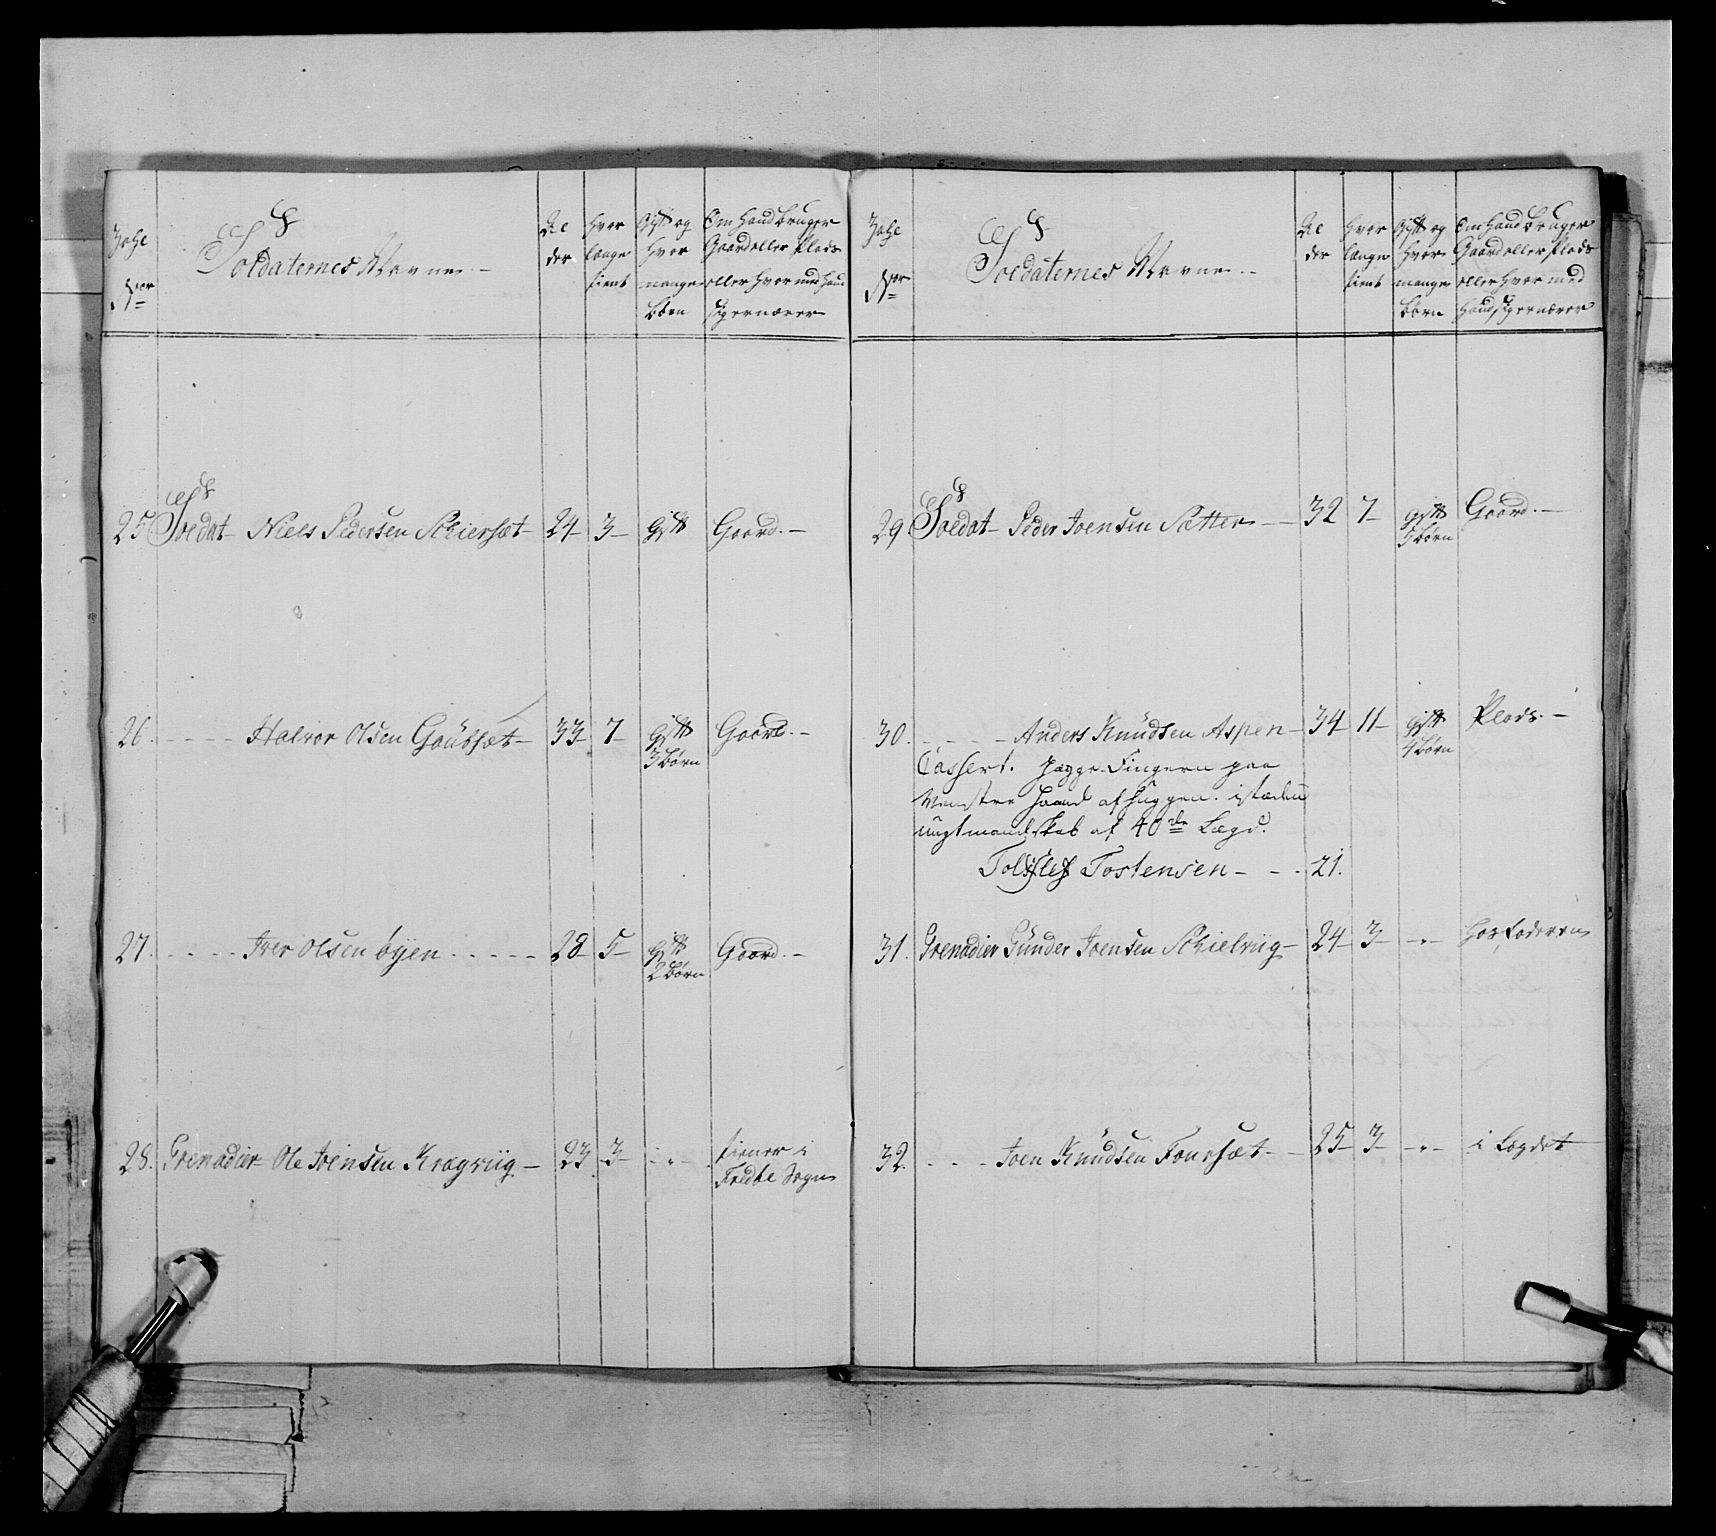 Sohl
No
Soldaternes Navne
Al
der
hvor
længe
tient
Gift og
hvor
mange
børn
Om hand bruger
Gaard eller Plads
eller hvor med hand
sig ernærer
25 Soldat Niels Pedersen Schiersæt 24 3 gift Gaard.
26. Halvor Olsen Gaübsæt 33 7 gift Gaard.
3 børn
27. Iver Olsen byen 28 5 gift Gaard.
2 børn
28. Grenadier Ole Joensen Kragviig 23 3 tiener i
Fredbe Sogn
No
Soldaternes Navne
Al
der
hvor
længe
tient
Gift og
hvor
mange
børn
Om hand bruger
Gaard eller Plads
eller hvor med
hand sig ernærer
29. Soldat Peder Joensen Sætter 32 7 gift Gaard.
5 børn
30. Anders Knüdsen Aspen 34 11 gift Plads.
4 børn
Cassert. Fingern paa
Venstre haand afhuggen. istæden
ungt mandskab af 40de Lægd.
Tostensen 21.
31. Grenadier Günder Joensen Schielviig 24 3 hos faderen
32. Joen Knüdsen Foursæt 25 3 i Lægdet